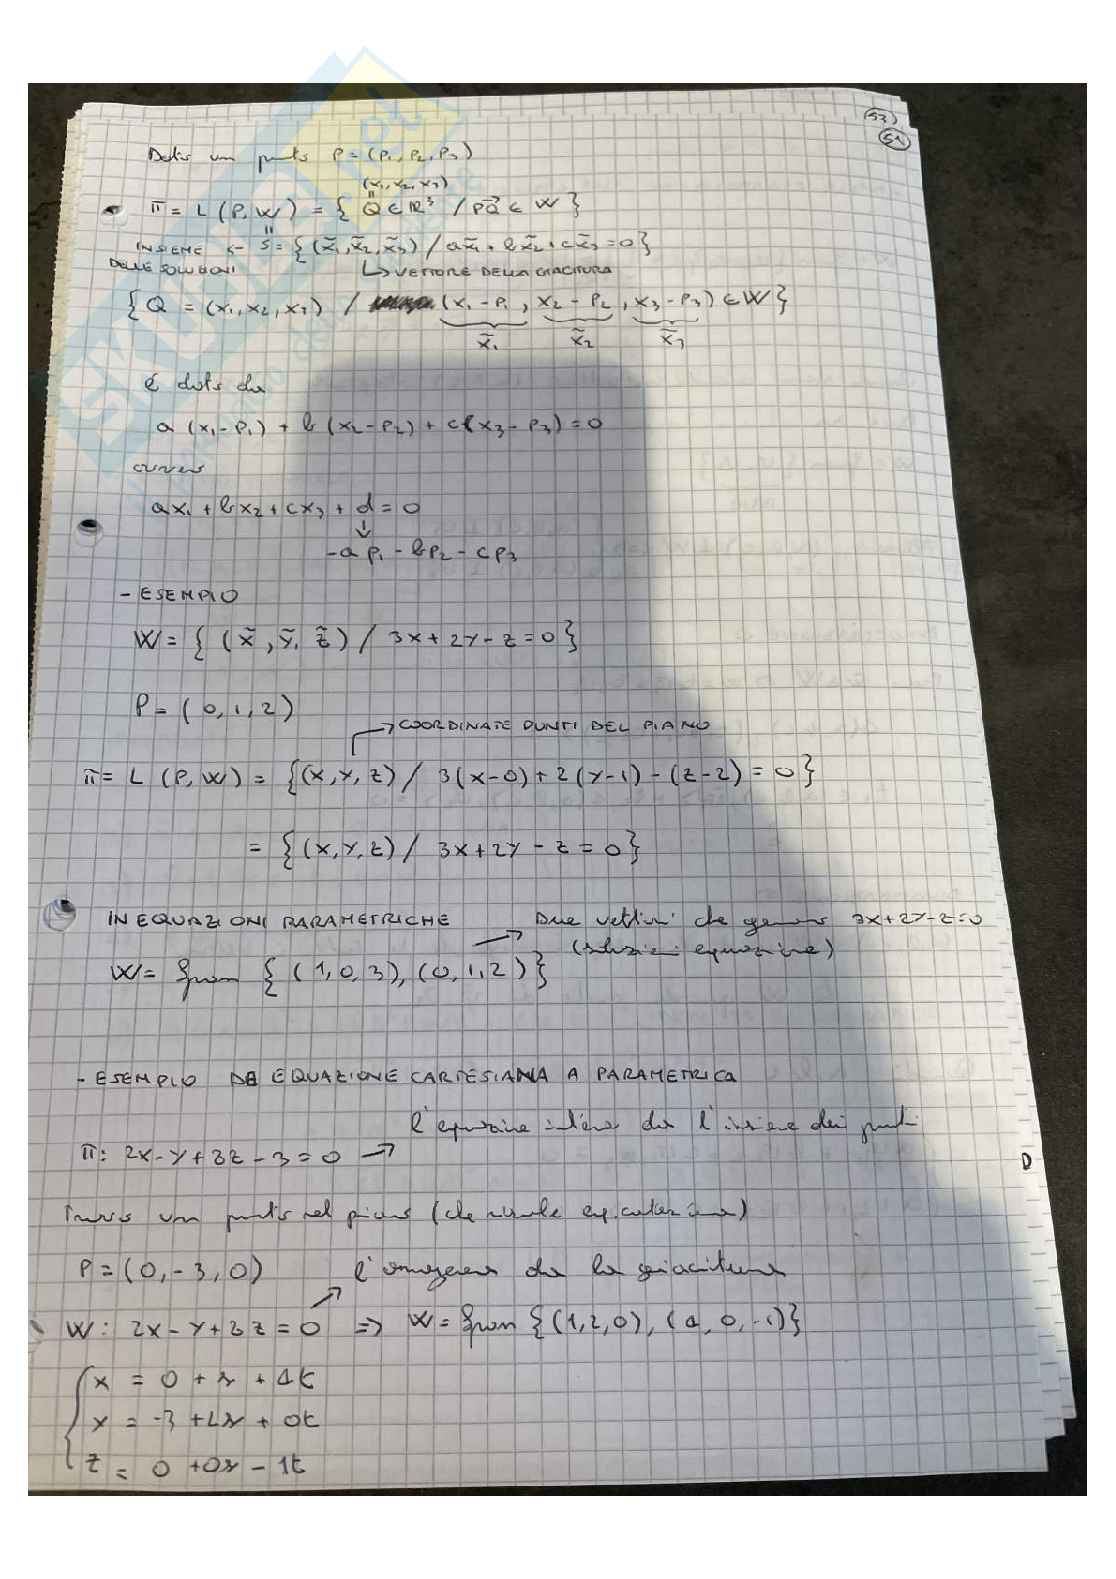 53)
52
Dato un punto P = (P₁, P₂, P₃)
(x₁, x₂, x₃)
π = L (P, W) = { Q ∈ ℝ³ / PQ⃗ ∈ W }
INSIEME ← S = { (x̃₁, x̃₂, x̃₃) / ax̃₁ + bx̃₂ + cx̃₃ = 0 }
DELLE SOLUZIONI ↳ VETTORE DELLA GIACITURA
{ Q = (x₁, x₂, x₃) / (x₁ - P₁, x₂ - P₂, x₃ - P₃) ∈ W }
x̃₁ x̃₂ x̃₃
è dato da
a (x₁ - P₁) + b (x₂ - P₂) + c (x₃ - P₃) = 0
ovvero
ax₁ + bx₂ + cx₃ + d = 0
↓
- a p₁ - b p₂ - c p₃
- ESEMPIO
W = { (x̃, ỹ, z̃) / 3x + 2y - z = 0 }
P = ( 0, 1, 2 )
→ COORDINATE PUNTI DEL PIANO
π = L (P, W) = { (x, y, z) / 3(x-0) + 2(y-1) - (z-2) = 0 }
= { (x, y, z) / 3x + 2y - z = 0 }
IN EQUAZIONI PARAMETRICHE Due vettori che generano 3x + 2y - z = 0
(soluzioni equazione)
W = Span { (1, 0, 3), (0, 1, 2) }
- ESEMPIO DA EQUAZIONE CARTESIANA A PARAMETRICA
l'equazione intera dà l'insieme dei punti
π: 2x - y + 3z - 3 = 0 →
D
Trovo un punto nel piano (che risolve eq. cartesiana)
P = (0, -3, 0) l'omogenea dà la giacitura
W: 2x - y + 3z = 0 ⇒ W = Span { (1, 2, 0), ( , 0, -1) }
x = 0 + s + t
y = -3 + 2s + 0t
z = 0 + 0s - 1t